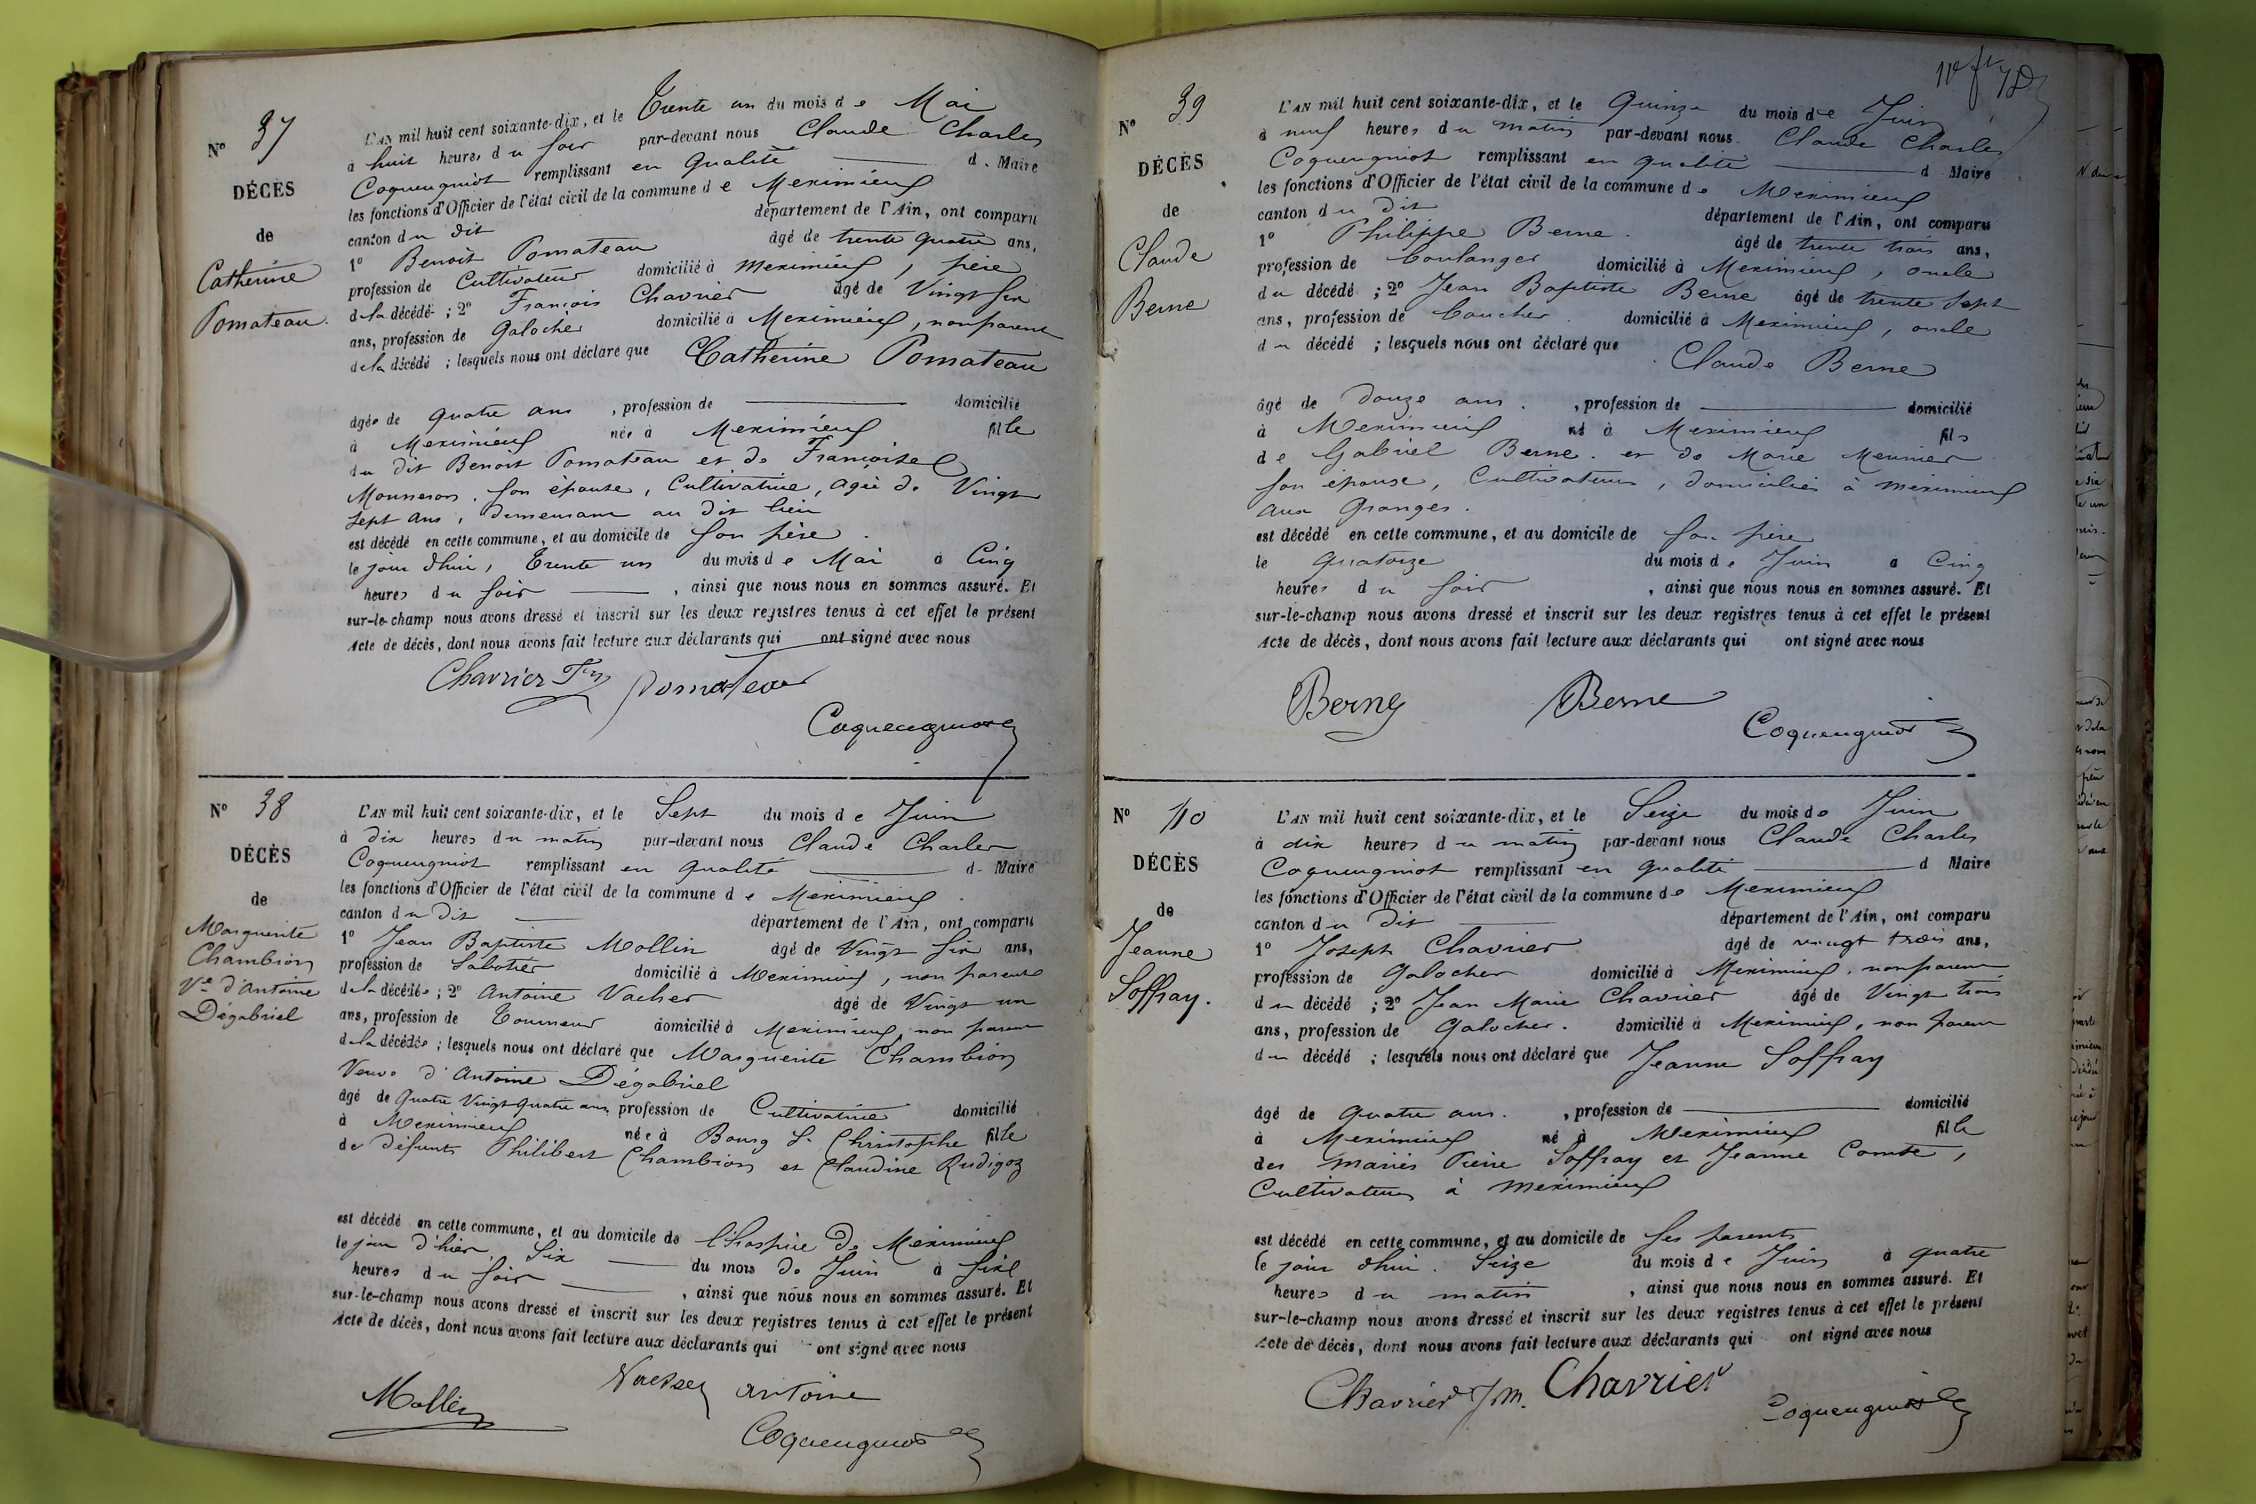 N° 37
DÉCÈS
de
Catherine
Pomateau.
L'AN mil huit cent soixante-dix, et le Trente un du mois de Mai
à huit heures du soir par-devant nous Claude Charles
Coqueugniot remplissant en qualité d. Maire
les fonctions d'Officier de l'état civil de la commune de Meximieux
canton du dit département de l'Ain, ont comparu
1° Benoit Pomateau âgé de trente quatre ans,
profession de Cultivateur domicilié à Meximieux, père
de la décédé ; 2° François Chavrier âgé de Vingt six
ans, profession de Galocher domicilié à Meximieux, non parent
de la décédé ; lesquels nous ont déclaré que Catherine Pomateau
âgée de quatre ans, profession de domicilié
à Meximieux née à Meximieux fille
du dit Benoit Pomateau et de Françoise
Monneron, son épouse, Cultivatrice, agée de Vingt
sept ans, demeurant au dit lieu
est décédé en cette commune, et au domicile de son père.
le jour d'hui, Trente un du mois de Mai à Cinq
heures du soir, ainsi que nous nous en sommes assuré. Et
sur-le-champ nous avons dressé et inscrit sur les deux registres tenus à cet effet le présent
Acte de décès, dont nous avons fait lecture aux déclarants qui ont signé avec nous
Chavrier Fçs Pomateau
Coqueugniot
N° 38
DÉCÈS
de
Marguerite
Chambion
Ve d'Antoine
Dégabriel
L'AN mil huit cent soixante-dix, et le Sept du mois de Juin
à dix heures du matin par-devant nous Claude Charles
Coqueugniot remplissant en qualité d. Maire
les fonctions d'Officier de l'état civil de la commune de Meximieux
canton du dit département de l'Ain, ont comparu
1° Jean Baptiste Mollin âgé de Vingt six ans,
profession de Sabotier domicilié à Meximieux, non parent
de la décédée ; 2° Antoine Vacher âgé de Vingt un
ans, profession de Tourneur domicilié à Meximieux, non parent
de la décédée ; lesquels nous ont déclaré que Marguerite Chambion
Veuve d'Antoine Dégabriel
âgé de Quatre Vingt quatre ans, profession de Cultivatrice domicilié
à Meximieux née à Bourg St Christophe fille
de défunts Philibert Chambion et Claudine Rudigoz
est décédé en cette commune, et au domicile de l'hospice de Meximieux
le jour d'hier, Six du mois de Juin à six
heures du soir, ainsi que nous nous en sommes assuré. Et
sur-le-champ nous avons dressé et inscrit sur les deux registres tenus à cet effet le présent
Acte de décès, dont nous avons fait lecture aux déclarants qui ont signé avec nous
Mollin Vacher antoine
Coqueugniot
N° 39
DÉCÈS
de
Claude
Berne
L'AN mil huit cent soixante-dix, et le Quinze du mois de Juin
à neuf heures du matin par-devant nous Claude Charles
Coqueugniot remplissant en qualité d Maire
les fonctions d'Officier de l'état civil de la commune de Meximieux
canton du dit département de l'Ain, ont comparu
1° Philippe Berne âgé de trente trois ans,
profession de boulanger domicilié à Meximieux, oncle
du décédé ; 2° Jean Baptiste Berne âgé de trente sept
ans, profession de boucher domicilié à Meximieux, oncle
du décédé ; lesquels nous ont déclaré que Claude Berne
âgé de douze ans, profession de domicilié
à Meximieux né à Meximieux fils
de Gabriel Berne et de Marie Meunier
son épouse, Cultivateurs, domiciliés à Meximieux
aux Granges.
est décédé en cette commune, et au domicile de son père
le Quatorze du mois de Juin à Cinq
heures du soir, ainsi que nous nous en sommes assuré. Et
sur-le-champ nous avons dressé et inscrit sur les deux registres tenus à cet effet le présent
Acte de décès, dont nous avons fait lecture aux déclarants qui ont signé avec nous
Berne Berne
Coqueugniot
N° 40
DÉCÈS
de
Jeanne
Soffray.
L'AN mil huit cent soixante-dix, et le Seize du mois de Juin
à dix heures du matin par-devant nous Claude Charles
Coqueugniot remplissant en qualité d Maire
les fonctions d'Officier de l'état civil de la commune de Meximieux
canton du dit département de l'Ain, ont comparu
1° Joseph Chavrier âgé de vingt trois ans,
profession de Galocher domicilié à Meximieux, non parent
du décédé ; 2° Jean Marie Chavrier âgé de Vingt trois
ans, profession de Galocher. domicilié à Meximieux, non parent
du décédé ; lesquels nous ont déclaré que Jeanne Soffray
âgé de quatre ans., profession de domicilié
à Meximieux né à Meximieux fille
des mariés Pierre Soffray et Jeanne Comte,
Cultivateurs à Meximieux
est décédé en cette commune, et au domicile de ses parents
le jour d'hui. Seize du mois de Juin à quatre
heures du matin, ainsi que nous nous en sommes assuré. Et
sur-le-champ nous avons dressé et inscrit sur les deux registres tenus à cet effet le présent
Acte de décès, dont nous avons fait lecture aux déclarants qui ont signé avec nous
Chavrier Jm. Chavrier
Coqueugniot